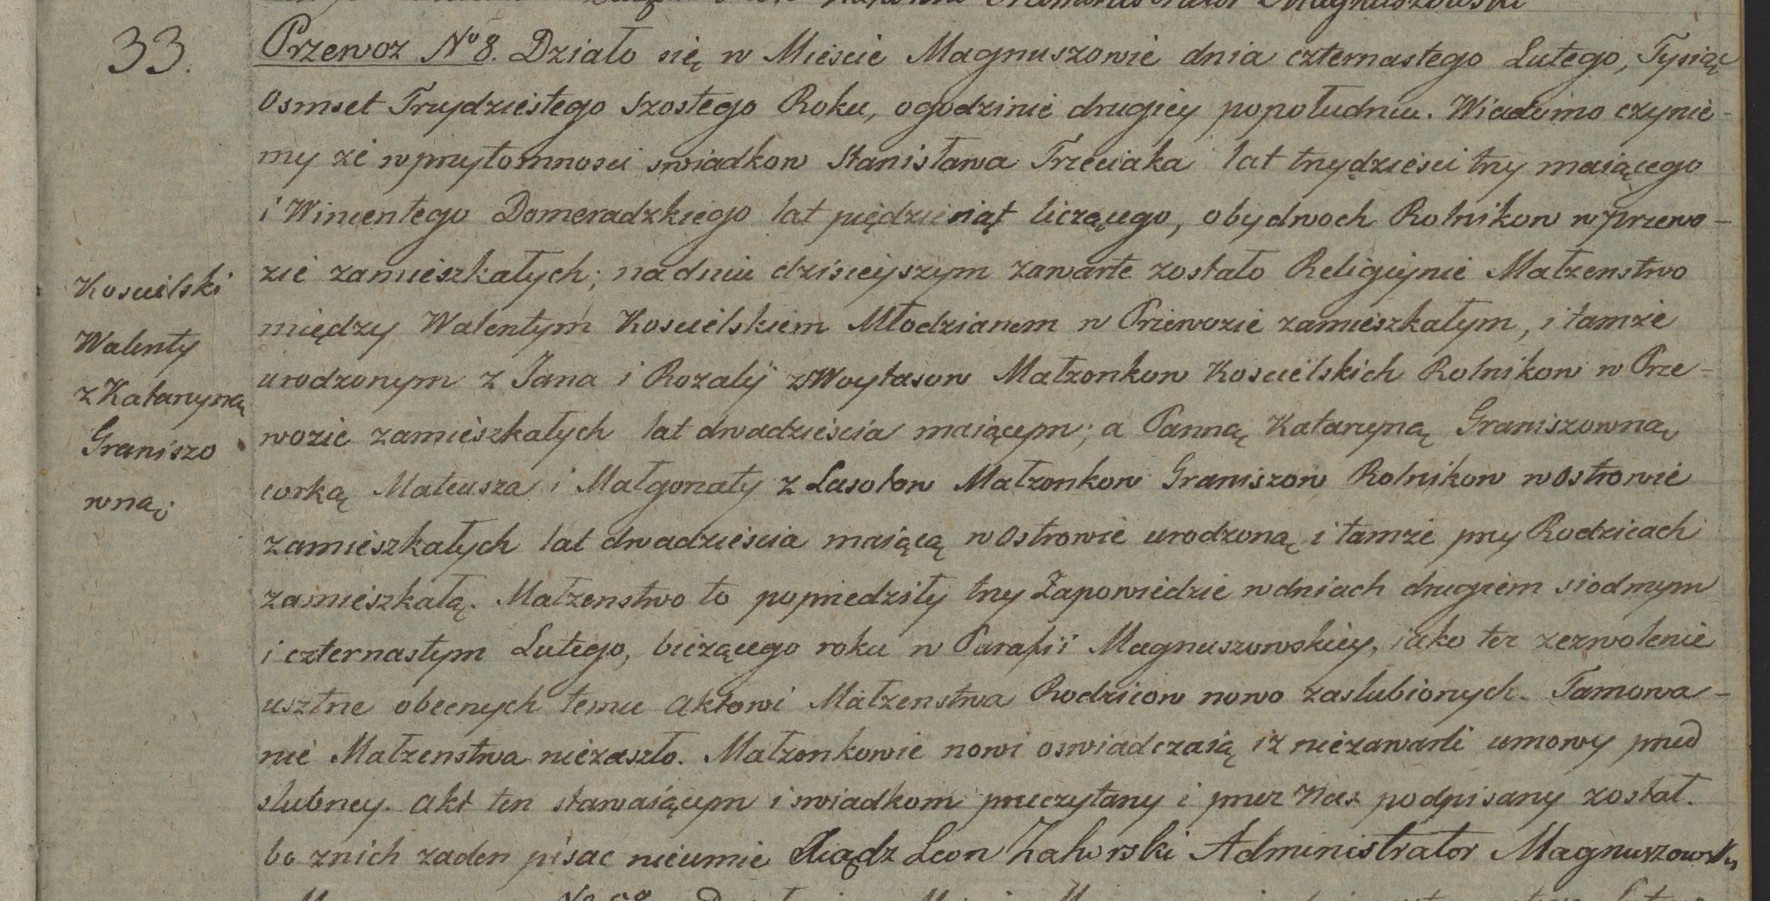 33.
Przewoz No 8. Działo się w Mieście Magnuszowie dnia czternastego Lutego, Tysiąc
Osmset Trzydziestego Szostego Roku, ogodzinie drugiey popołudniu. Wiadomo czynie-
my że wprzytomnosci swiadkow Stanisława Trzeciaka lat trzydzieści trzy maiącego
i Wincentego Domeradzkiego lat piędziesiąt liczącego, obydwoch Rolnikow wprzewo-
zie zamieszkałych; nadniu dzisieyszym zawarte zostało Religijnie Małzenstwo
między Walentym Koscielskiem Młodzianem w Przewozie zamieszkałym, i tamże
urodzonym z Jana i Rozalij z Woytasow Małzonkow Koscielskich Rolnikow w Prze-
wozie zamieszkałych lat dwadzieścia maiącym; a Panną Katarzyną Graniszowną
corką Mateusza i Małgorzaty z Lasotow Małzonkow Graniszow Rolnikow wOstrowie
zamieszkałych lat dwadzieścia maiącą wOstrowie urodzoną i tamże przy Rodzicach
zamieszkałą. Małzenstwo to poprzedziły trzy Zapowiedzie wdniach drugiem siodmym
i czternastym Lutego, bieżącego roku w Parafii Magnuszowskiey, iako też zezwolenie
usztne obecnych temu aktowi Małżenstwa Rodzicow nowo zaslubionych. Tamowa-
nie Małzenstwa niezaszło. Małzonkowie nowi oswiadczaią iż niezawarli umowy przed
slubney. akt ten stawaiącym i swiadkom przeczytany i przez Nas podpisany został.
bo znich zaden pisac nieumie Xiądz Leon Zahorski Administrator Magnuszowski
Koscielski
Walenty
z Katarzyną
Graniszo
wną.